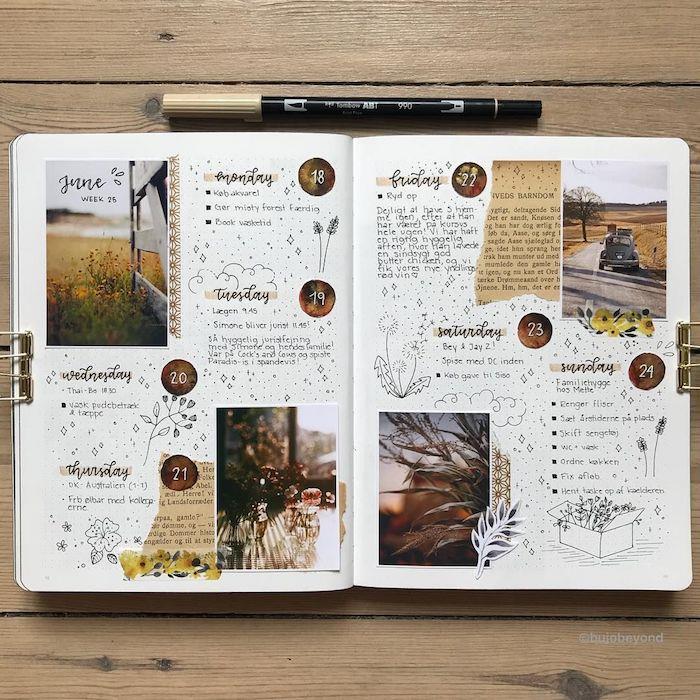 Tombow ABT
990
June
WEEK 25
monday
18
Køb akvarel
Gør misty forest færdig
Book vasketid
tuesday
19
Lægen 9.45
Simone bliver jurist 11.45!
SÅ hyggelig juristfejring
med Simone og hendes familie!
Var på Cock's and Cows og spiste
Paradis-is i spandevis!
wednesday
20
Thai-Bo 18.30
Vask pudebetræk
& tæppe
thursday
21
DK - Australien (1-1)
Frb ølbar med kollega-
erne
friday
22
Ryd op
Dejligt at have S hjem-
me igen, efter at han
har været på kursus
hele ugen! Vi har haft
en rigtig hyggelig
aften, hvor han lavede
en sindsygt god
butter chicken, og vi
fik vores nye yndlings-
rødvin
NVEDS BARNDOM
saturday
23
Bey & Jay Z!
Spise med DC inden
Køb gave til Siso
sunday
24
Familiehygge
hos Mette
Rengør fliser
Sæt årstiderne på plads
Skift sengetøj
WC + vask
Ordne køkken
Fix afløb
Hent taske op af kælderen
©bujobeyond